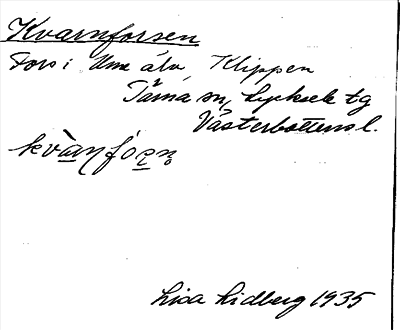 Kvarnforsen
Fors i Ume älv Klippen
Tärna sn, Lycksele tg
Västerbottens l.
Lisa Lidberg 1935